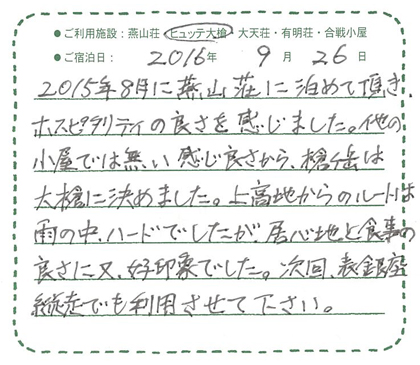 ●ご利用施設：燕山荘・ヒュッテ大槍・大天荘・有明荘・合戦小屋
●ご宿泊日： 2016年 9月 26日
2015年8月に燕山荘に泊めて頂き、
ホスピタリティの良さを感じました。他の
小屋では無い感じ良さから、槍ヶ岳は
大槍に決めました。上高地からのルートは
雨の中、ハードでしたが、居心地と食事の
良さに又、好印象でした。次回、表銀座
縦走でも利用させて下さい。